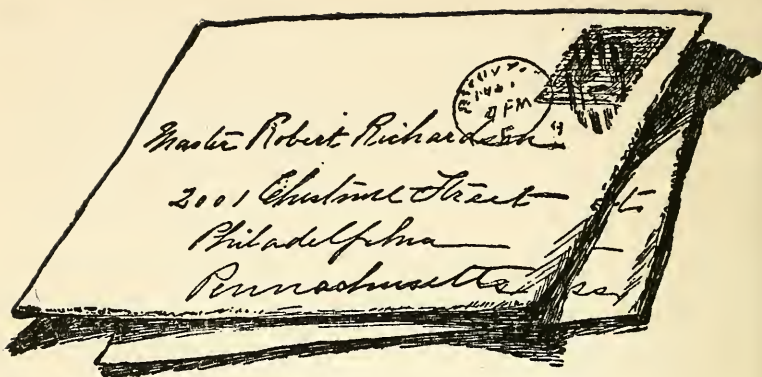 Master Robert Richardson
2001 Chestnut Street
Philadelphia
Pennachusetts
4 PM